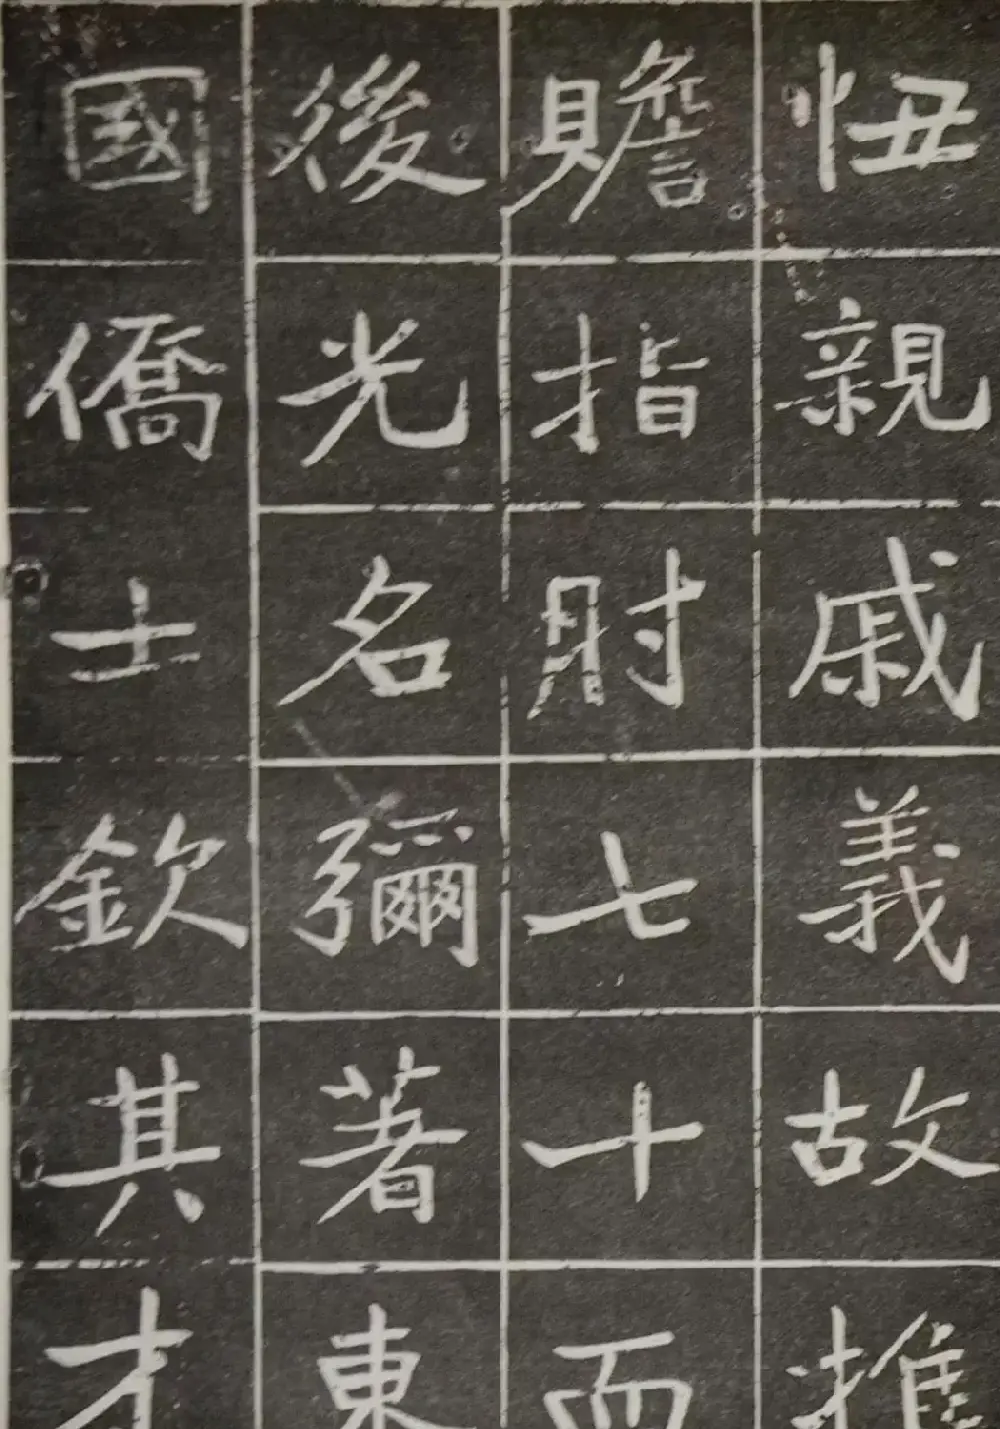 忸親戚義故推
贍指肘七十而
後光名彌著東
國僑士欽其才